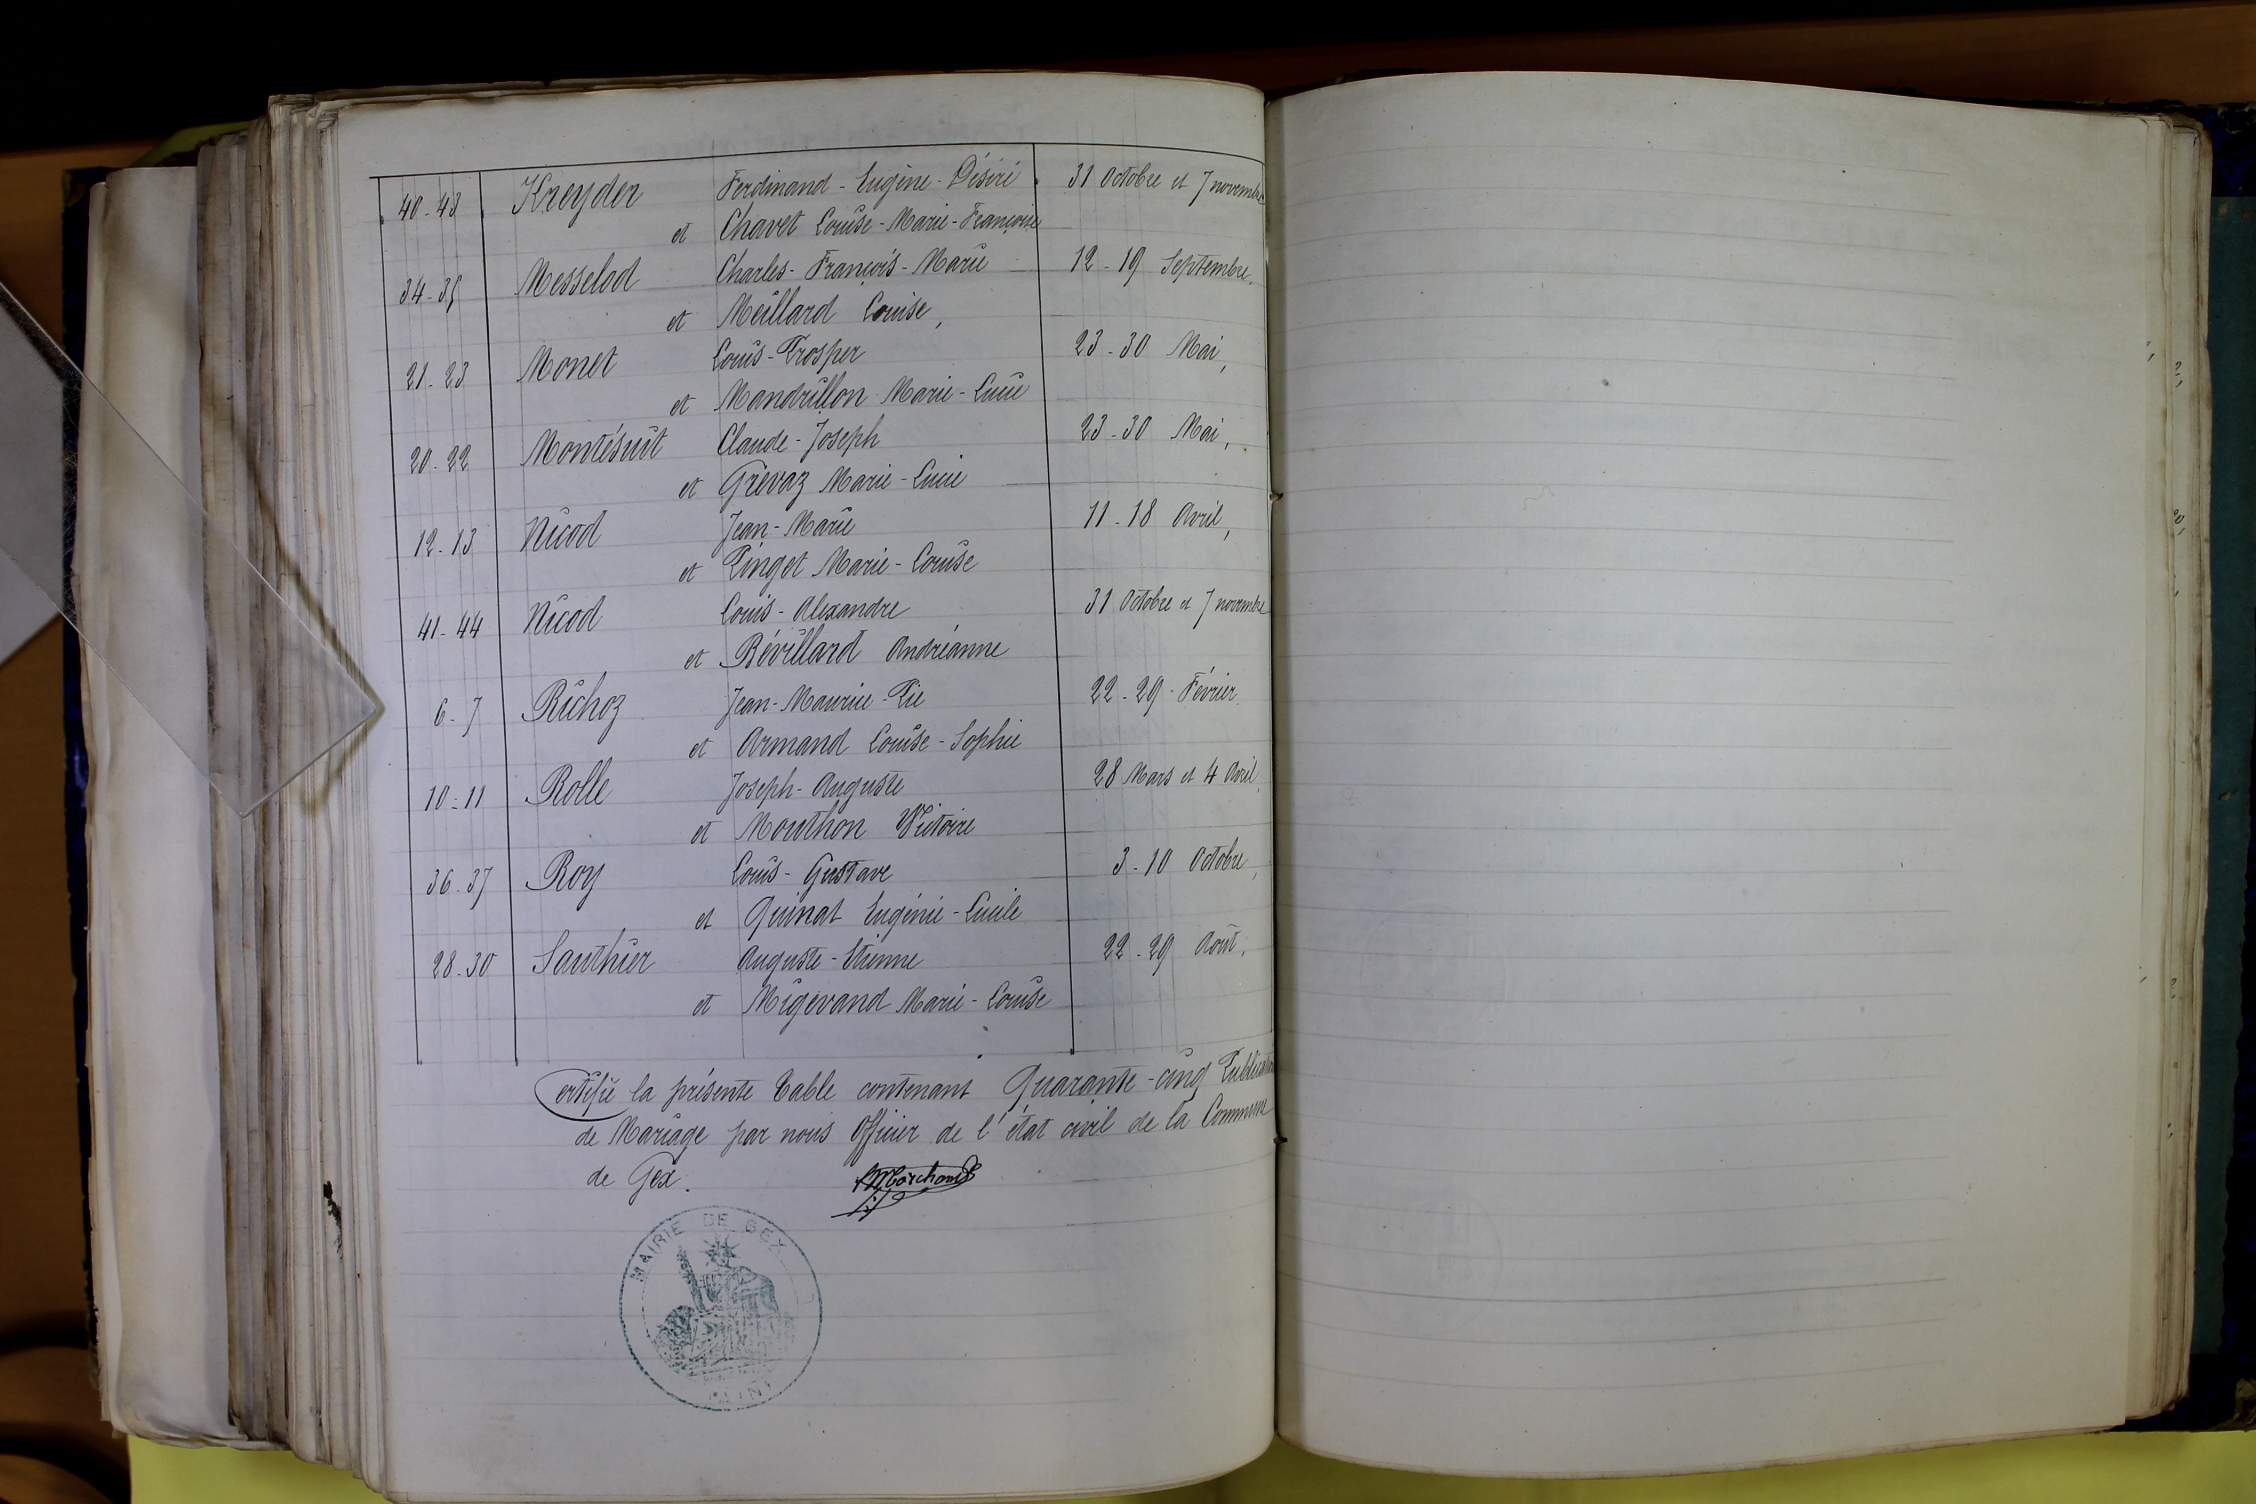 40-43 Kreyder Ferdinand-Eugène-Désiré 31 Octobre et 7 novembre
et Chavet Louise-Marie-Françoise
34-35 Messelod Charles-François-Marie 12-19 Septembre,
et Meillard Louise,
21-23 Monet Louis-Prosper 23-30 Mai,
et Mandrillon Marie-Lucie
20-22 Montésuit Claude-Joseph 23-30 Mai,
et Grévaz Marie-Lucie
12-13 Nicod Jean-Marie 11-18 Avril,
et Pinget Marie-Louise
41-44 Nicod Louis-Alexandre 31 Octobre et 7 novembre
et Révillard Andréanne
6-7 Richoz Jean-Maurice-Pie 22-29 Février
et Armand Louise-Sophie
10-11 Rolle Joseph-Auguste 28 Mars et 4 Avril
et Mouthon Victoire
36-37 Roy Louis-Gustave 3-10 Octobre,
et Quinat Eugénie-Lucile
28-30 Sauthier Auguste-Etienne 22-29 Août.
et Migevand Marie-Louise
Certifié la présente Table contenant Quarante-cinq Publication
de Mariage par nous Officier de l'état civil de la Commune
de Gex.
Marchand
MAIRIE DE GEX
(AIN)